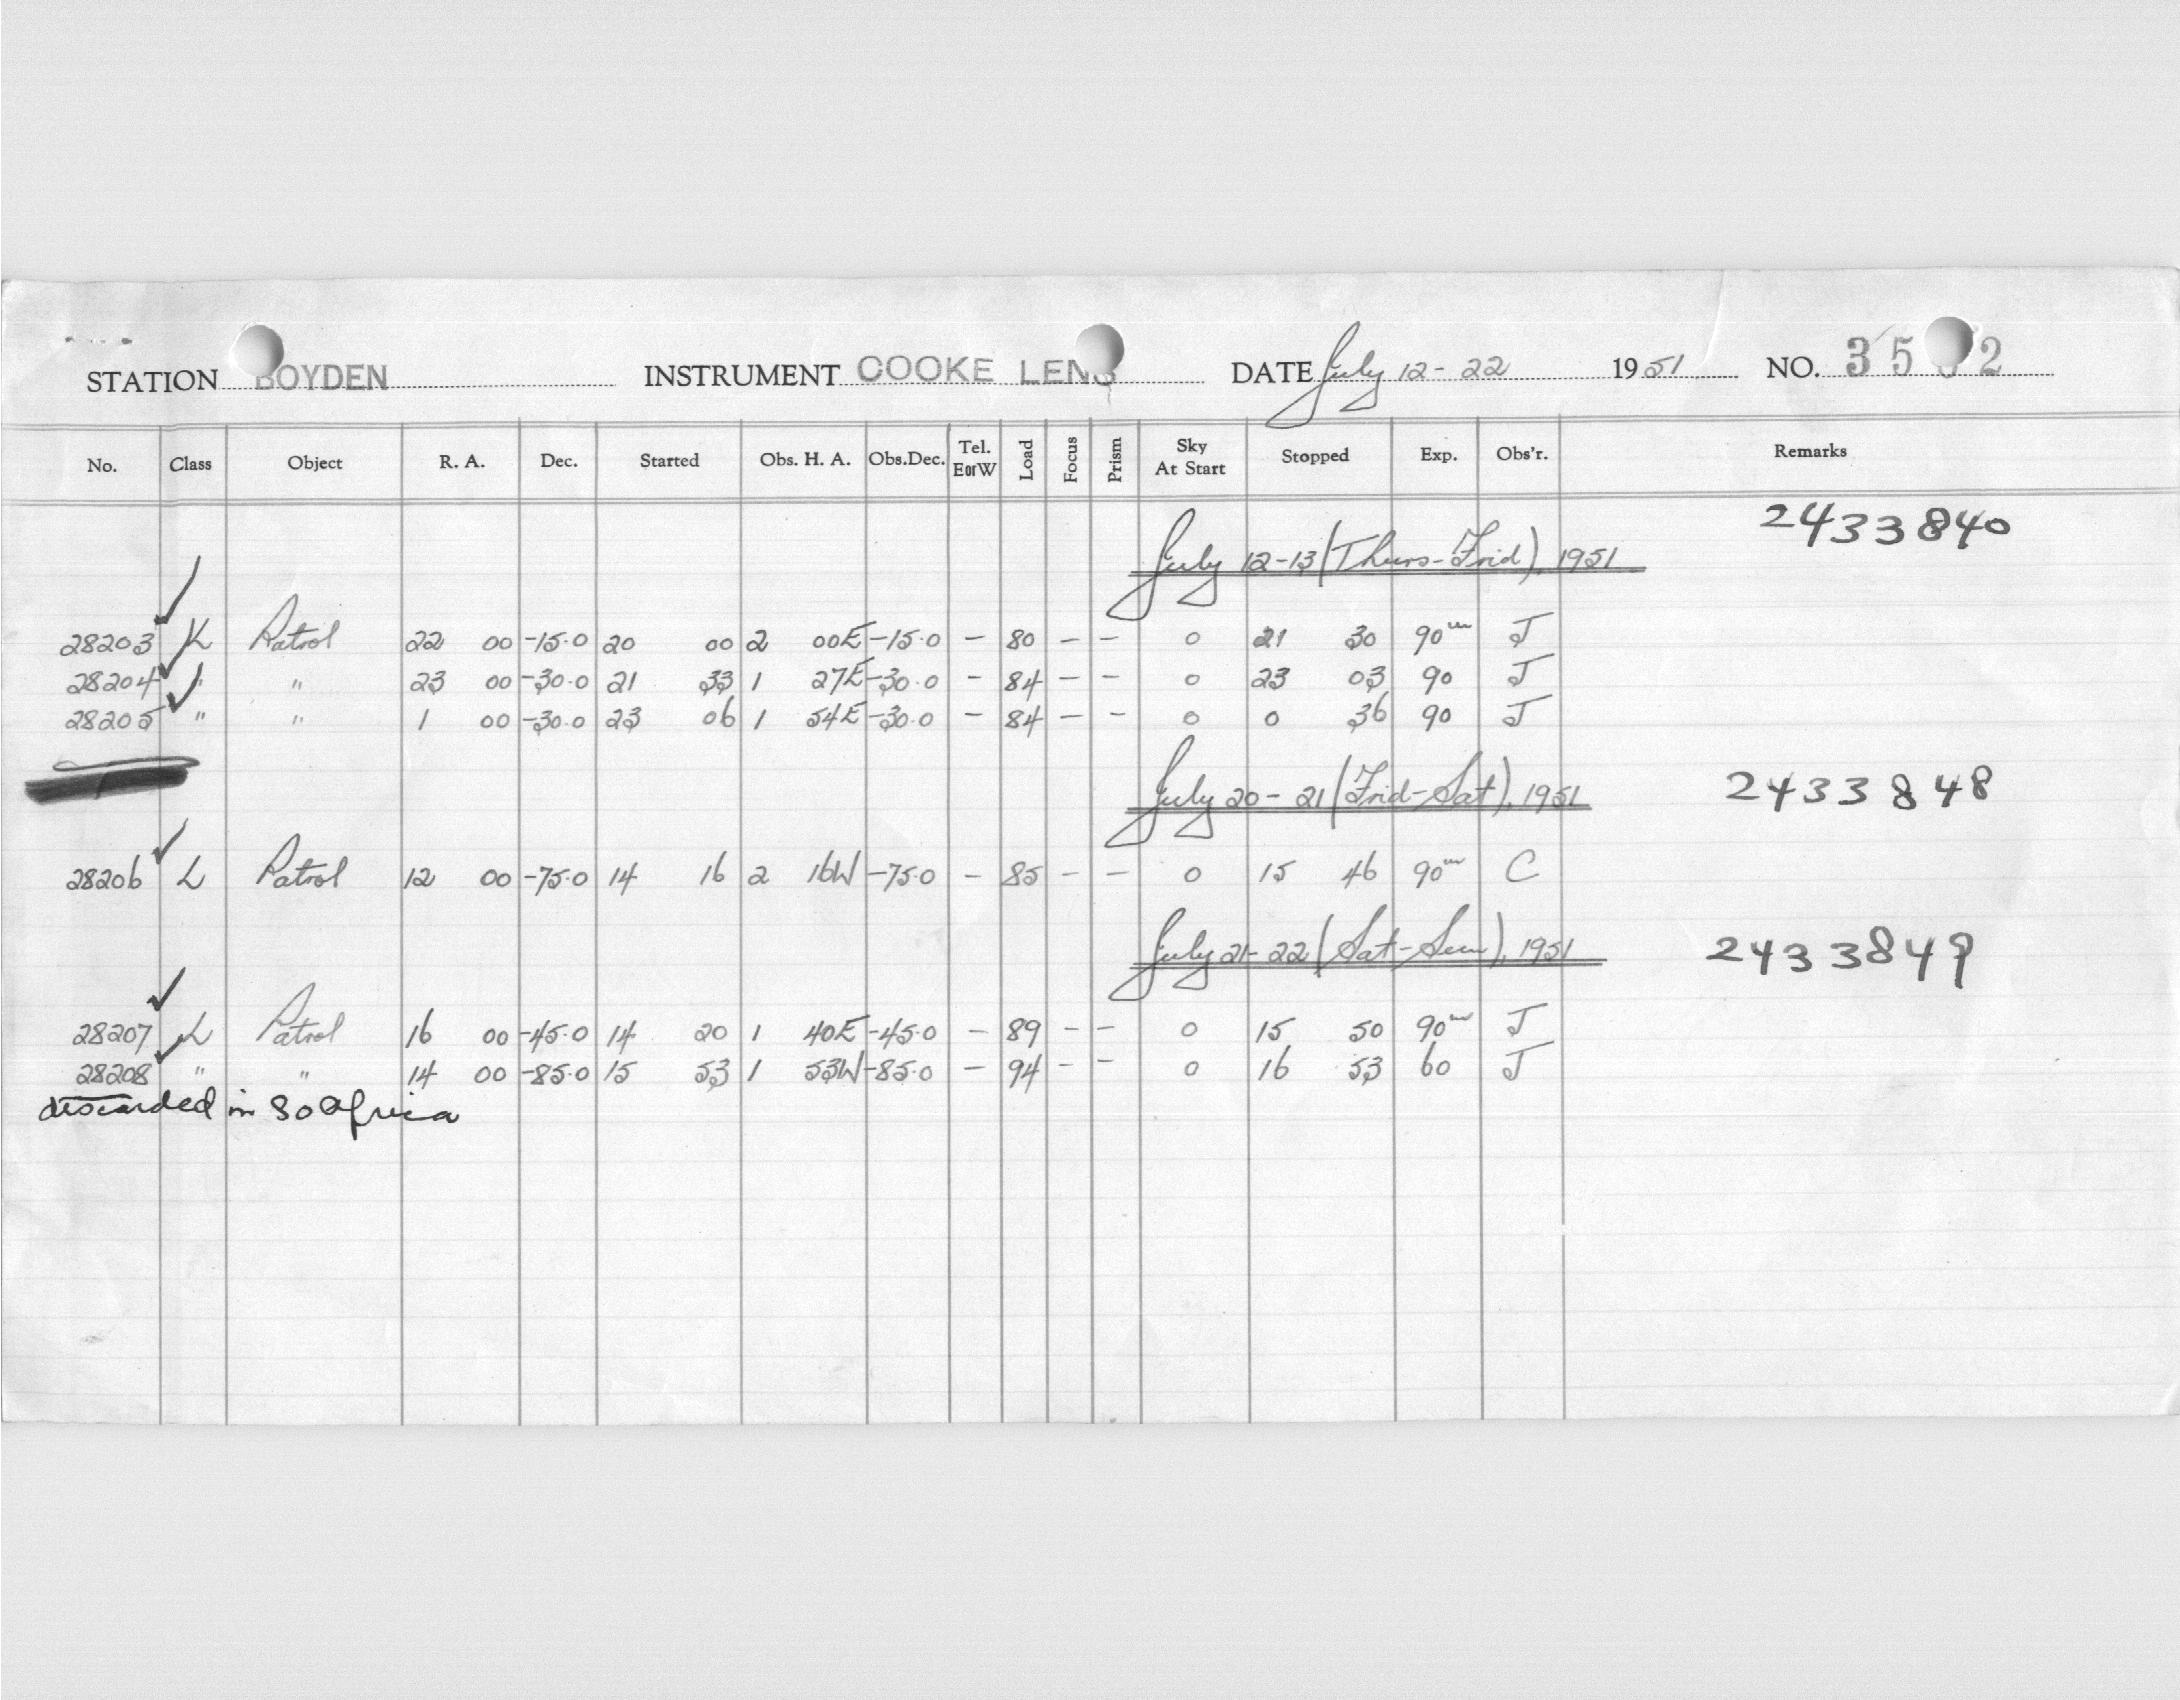 STATION BOYDEN INSTRUMENT COOKE LENS DATE July 12-22 1951 NO. 35 2
No. Class Object R. A. Dec. Started Obs. H. A. Obs.Dec. Tel. E or W Load Focus Prism Sky At Start Stopped Exp. Obs'r. Remarks
July 12-13 (Thurs-Frid), 1951 2433840
28203 K Patrol 22 00 -15.0 20 00 2 00E -15.0 - 80 - - 0 21 30 90m J
28204 " " 23 00 -30.0 21 33 1 27E -30.0 - 84 - - 0 23 03 90 J
28205 " " 1 00 -30.0 23 06 1 54E -30.0 - 84 - - 0 0 36 90 J
July 20-21 (Frid-Sat), 1951 2433848
28206 L Patrol 12 00 -75.0 14 16 2 16W -75.0 - 85 - - 0 15 46 90m C
July 21-22 (Sat-Sun), 1951 2433849
28207 L Patrol 16 00 -45.0 14 20 1 40E -45.0 - 89 - - 0 15 50 90m J
28208 " " 14 00 -85.0 15 53 1 53W -85.0 - 94 - - 0 16 53 60 J
discarded in So Africa